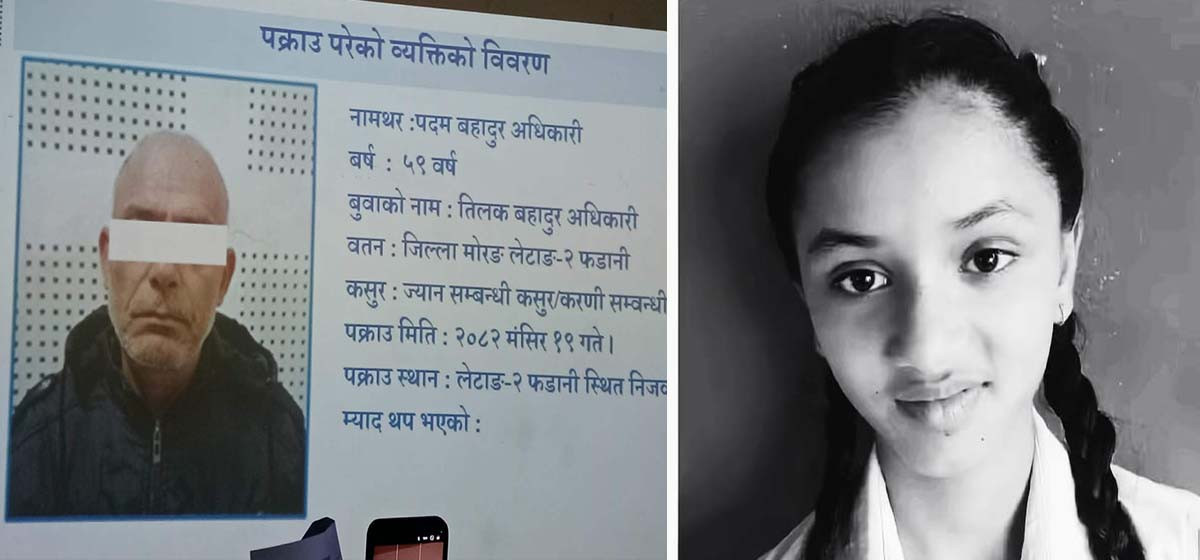 पक्राउ परेको व्यक्तिको विवरण
नामथर :पदम बहादुर अधिकारी
बर्ष : ५९ वर्ष
बुवाको नाम : तिलक बहादुर अधिकारी
वतन : जिल्ला मोरङ लेटाङ-२ फडानी
कसुर : ज्यान सम्बन्धी कसुर/करणी सम्वन्धी
पक्राउ मिति : २०८२ मंसिर १९ गते।
पक्राउ स्थान : लेटाङ-२ फडानी स्थित
म्याद थप भएको :